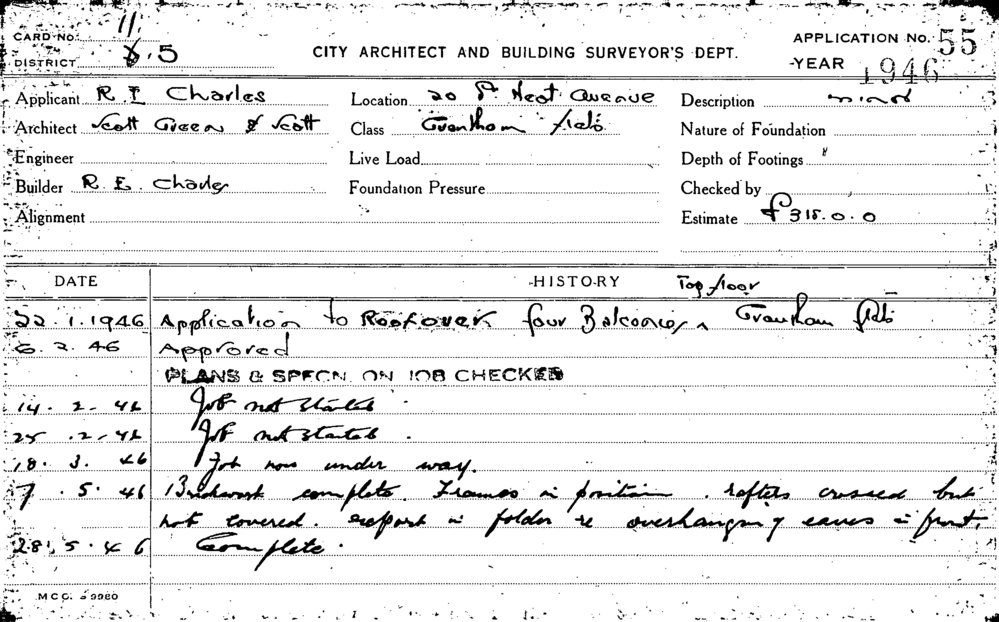 CARD NO. 11.
DISTRICT 8.5
CITY ARCHITECT AND BUILDING SURVEYOR'S DEPT.
APPLICATION NO. 55
YEAR 1946
Applicant R E Charles
Location 20 Avenue
Description minor
Architect Scott Green & Scott
Class Grantham flats
Nature of Foundation
Engineer
Live Load
Depth of Footings
Builder R. E. Charles
Foundation Pressure
Checked by
Alignment
Estimate £315.0.0
DATE
HISTORY
Top floor
22.1.1946 Application to Roof over four Balconies, Grantham flats
6.2.46 Approved
PLANS & SPECN. ON JOB CHECKED
14.2.46 Job not started.
25.2.46 Job not started.
18.3.46 Job now under way.
7.5.46 Brickwork complete. Frames in position. rafters crossed but
not covered. report in folder re overhanging eaves in front.
28.5.46 Complete.
M C C.